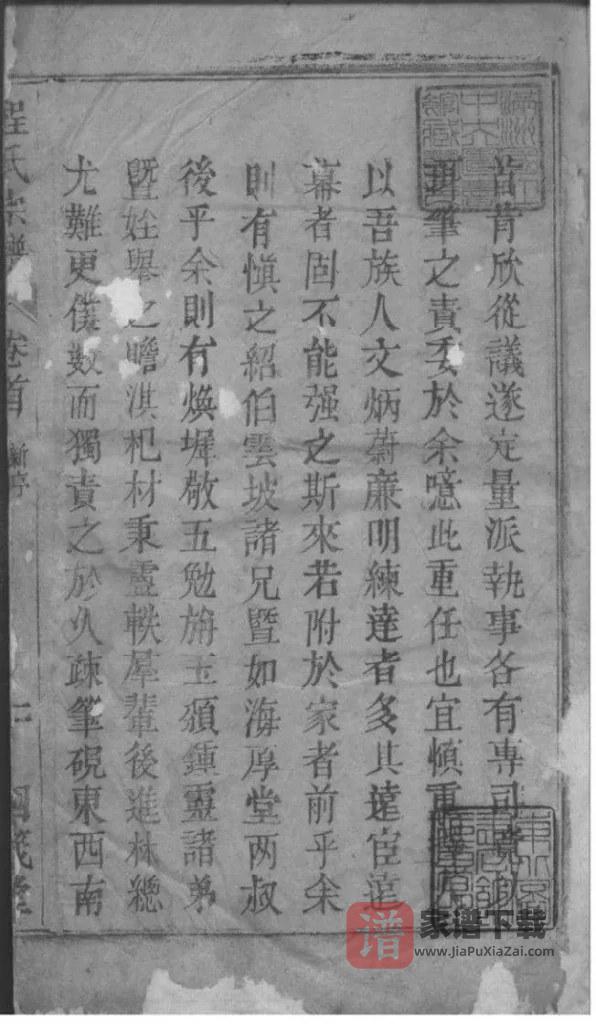 皆肯欣從議遂定量派執事各有專司
珥筆之責委於余噫此重任也宜慎重
以吾族人文炳蔚廉明練達者多其遠宦遠
幕者固不能强之斯來若附於家者前乎余
則有愼之紹伯雲坡諸兄暨如海厚堂两叔
後乎余則有煥墀敬五勉旃玉頴鍾靈諸弟
暨姪舉之瞻淇杞材秉靈軼羣輩後進林總
尤難更僕數而獨責之於久疎筆硯東西南
程氏宗譜
卷首
家谱下载
www.JiaPuXiaZai.com
谱